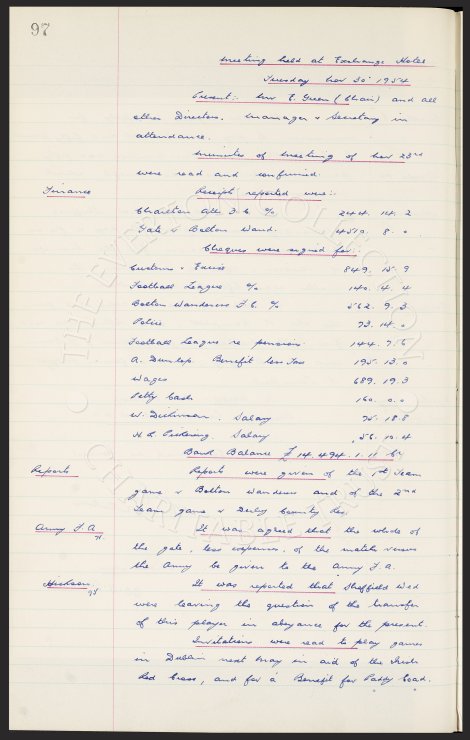 97
Meeting held at Exchange Hotel
Tuesday Nov 30th 1954
Present: Mr E. Green (Chair) and all
other Directors. Manager & Secretary in
attendance.
Minutes of Meeting of Nov 23rd
were read and confirmed.
Finance Receipts reported were:-
Charlton Ath. F.C. % 244. 14. 2
Gate v Bolton Wand. 4510. 8. 0
Cheques were signed for:-
Customs & Excise 849. 15. 9
Football League % 140. 4. 4
Bolton Wanderers F.C. % 562. 9. 3
Police 73. 14. 0
Football League re pensions 144. 7. 6
A. Dunlop. Benefit less Tax 195. 13. 0
Wages 689. 19. 3
Petty Cash 160. 0. 0
W. Dickinson. Salary 75. 18. 8
H. R. Pickering. Salary 56. 10. 4
Bank Balance £14,494. 1. 11 Cr
Reports Reports were given of the 1st Team
game v Bolton Wanderers and of the 2nd
Team game v Derby County Res.
Army F.A. It was agreed that the whole of
the gate, less expenses, of the match versus
the Army be given to the Army F.A.
It was reported that Sheffield Wed
were leaving the question of the transfer
of this player in abeyance for the present.
Invitations were read to play games
in Dublin next May in aid of the Irish
Red Cross, and for a Benefit for Paddy Coad.
THE EVERTON COLLECTION
CHARITABLE TRUST